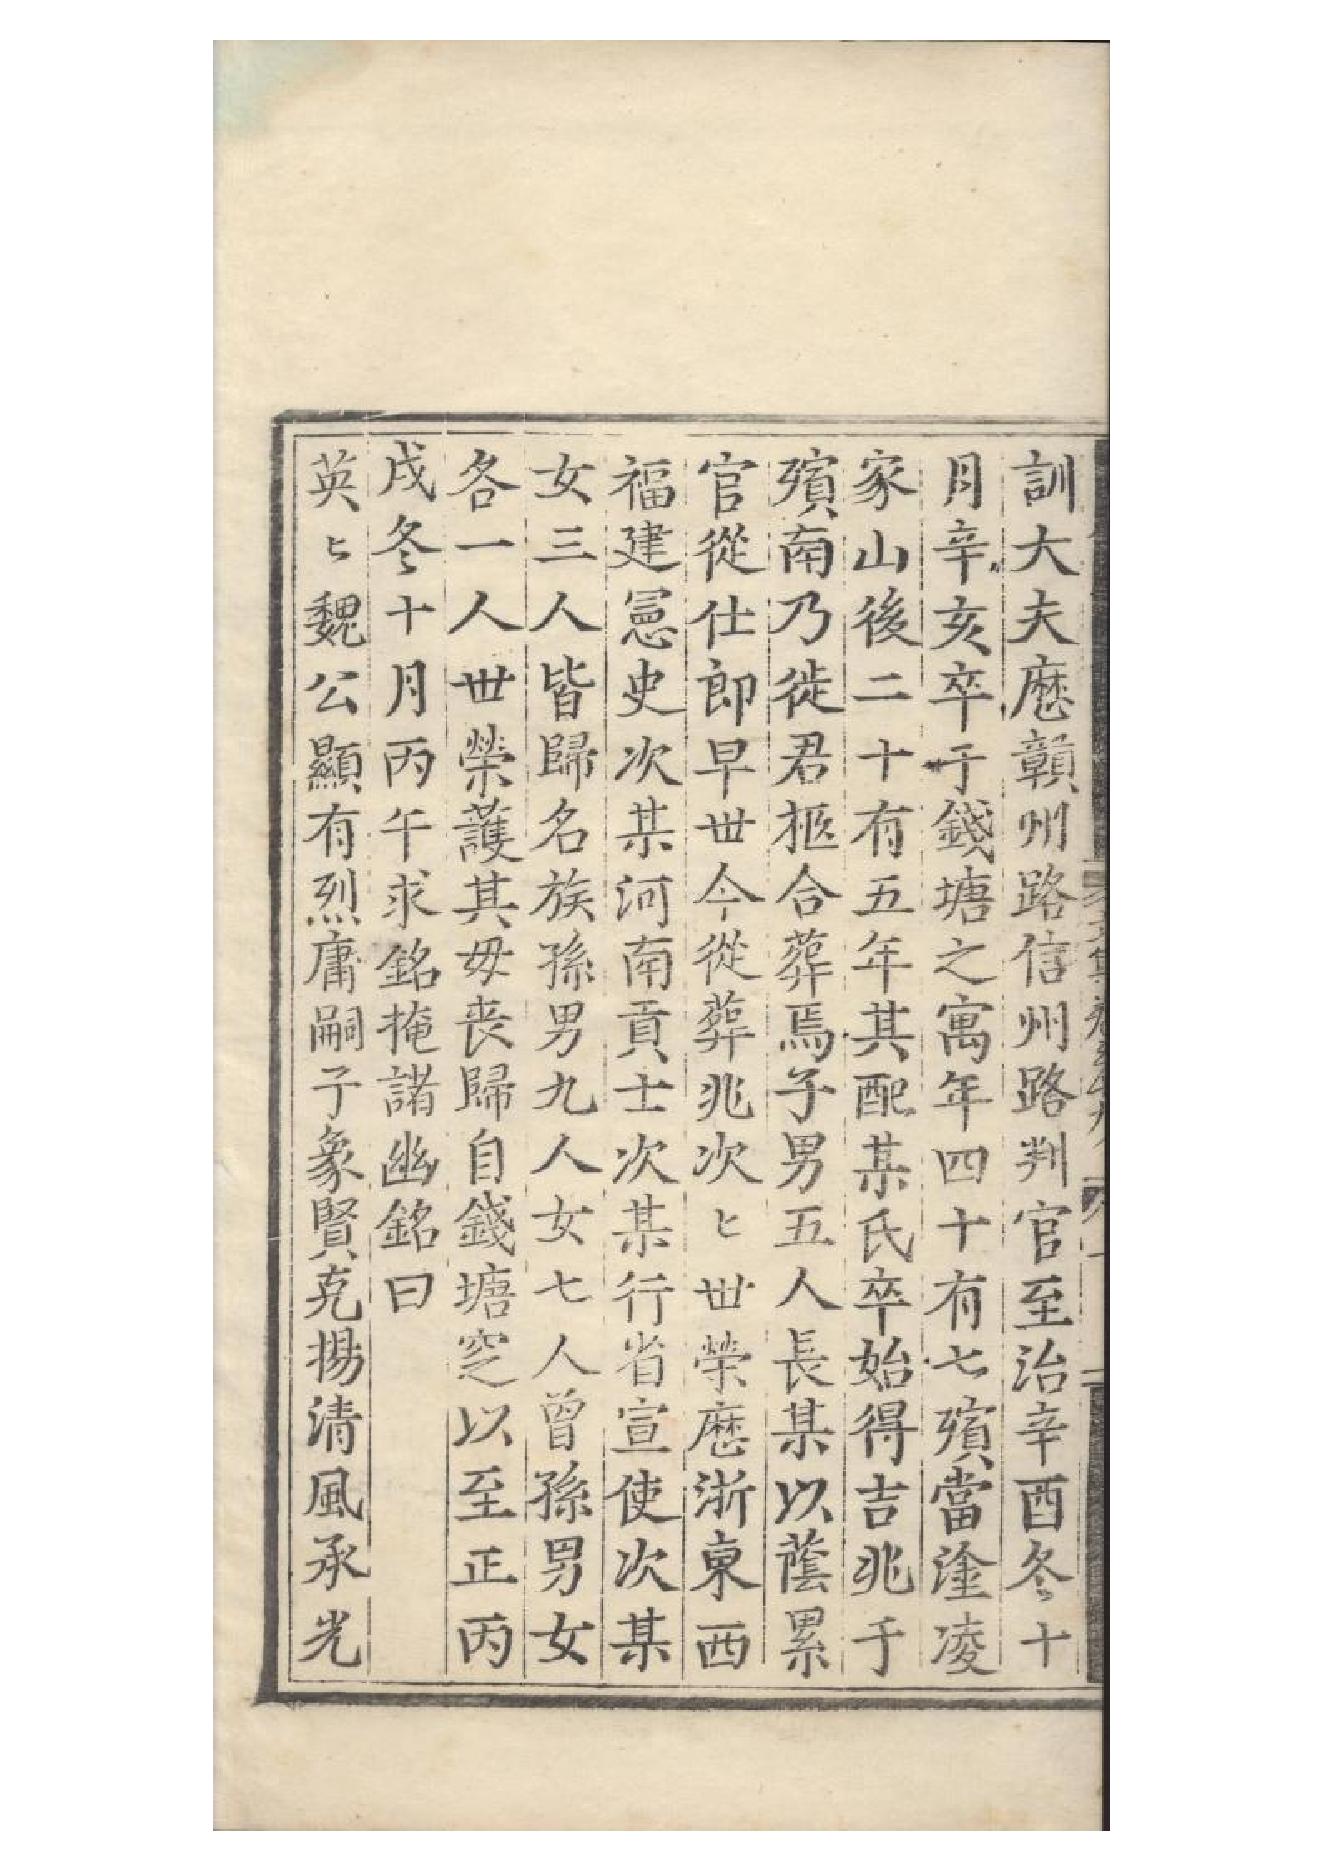 訓大夫歷贛州路信州路判官至治辛酉冬十
月辛亥卒于錢塘之寓年四十有七殯當塗凌
家山後二十有五年其配某氏卒始得吉兆于
殯南乃徙君柩合葬焉子男五人長某以蔭累
官從仕郎早世今從葬兆次〻世榮歷浙東西
福建憲史次某河南貢士次某行省宣使次某
女三人皆歸名族孫男九人女七人曾孫男女
各一人世榮護其母喪歸自錢塘窆以至正丙
戌冬十月丙午求銘掩諸幽銘曰
英〻魏公顯有烈庸嗣子象賢克揚清風承光